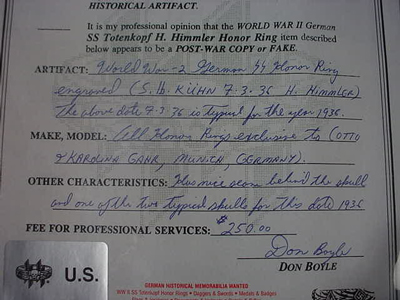 HISTORICAL ARTIFACT.
It is my professional opinion that the WORLD WAR II German
SS Totenkopf H. Himmler Honor Ring item described
below appears to be a POST-WAR COPY or FAKE.
ARTIFACT: World War-2 German SS Honor Ring
engraved (S. lb. KÜHN 7.3.36 H. HIMMLER)
the above date 7.3.36 is typical for the year 1936.
MAKE, MODEL: All Honor Rings exclusive to (OTTO
& KAROLINA GAHR, MUNICH, GERMANY).
OTHER CHARACTERISTICS: Has nice seam behind the skull
and one of the two typical skulls for this date 1936
FEE FOR PROFESSIONAL SERVICES: $250.00
Don Boyle
DON BOYLE
U.S.
GERMAN HISTORICAL MEMORABILIA WANTED
WW II SS Totenkopf Honor Rings • Daggers & Swords • Medals & Badges